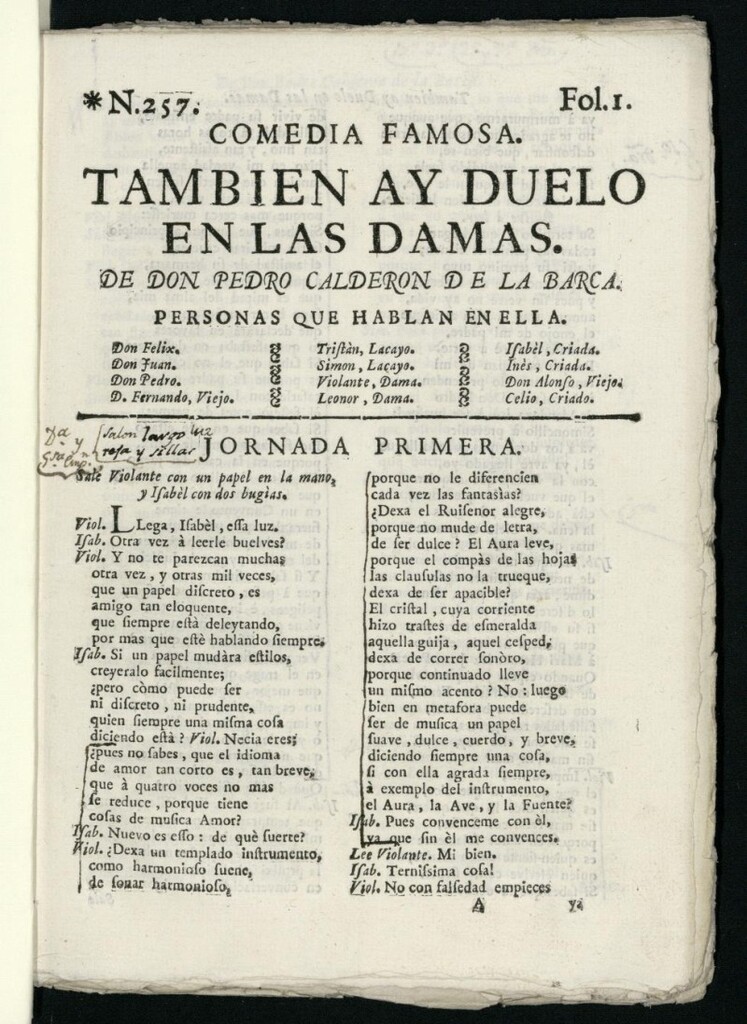 *N.257.
Fol.1.
COMEDIA FAMOSA.
TAMBIEN AY DUELO
EN LAS DAMAS.
DE DON PEDRO CALDERON DE LA BARCA.
PERSONAS QUE HABLAN EN ELLA.
Don Felix.
Don Juan.
Don Pedro.
D. Fernando, Viejo.
Tristàn, Lacayo.
Simon, Lacayo.
Violante, Dama.
Leonor, Dama.
Isabèl, Criada.
Inès, Criada.
Don Alonso, Viejo.
Celio, Criado.
salon largo luz
reja y sillas
JORNADA PRIMERA.
Sale Violante con un papel en la mano,
y Isabèl con dos bugias.
Viol. LLega, Isabèl, essa luz.
Isab. Otra vez à leerle buelves?
Viol. Y no te parezcan muchas
otra vez, y otras mil veces,
que un papel discreto, es
amigo tan eloquente,
que siempre està deleytando,
por mas que estè hablando siempre.
Isab. Si un papel mudàra estilos,
creyeralo facilmente;
¿pero còmo puede ser
ni discreto, ni prudente,
quien siempre una misma cosa
diciendo està? Viol. Necia eres;
¿pues no sabes, que el idioma
de amor tan corto es, tan breve,
que à quatro voces no mas
se reduce, porque tiene
cosas de musica Amor?
Isab. Nuevo es esso: de què suerte?
Viol. ¿Dexa un templado instrumento,
como harmonioso suene,
de sonar harmonioso,
porque no le diferencien
cada vez las fantasìas?
¿Dexa el Ruiseñor alegre,
porque no mude de letra,
de ser dulce? El Aura leve,
porque el compàs de las hojas
las clausulas no la trueque,
dexa de ser apacible?
El cristal, cuya corriente
hizo trastes de esmeralda
aquella guija, aquel cesped,
dexa de correr sonòro,
porque continuado lleve
un mismo acento? No: luego
bien en metafora puede
ser de musica un papel
suave, dulce, cuerdo, y breve,
diciendo siempre una cosa,
si con ella agrada siempre,
à exemplo del instrumento,
el Aura, la Ave, y la Fuente?
Isab. Pues convenceme con èl,
ya que sin èl me convences.
Lee Violante. Mi bien.
Isab. Ternissima cosa!
Viol. No con falsedad empieces
A
ya